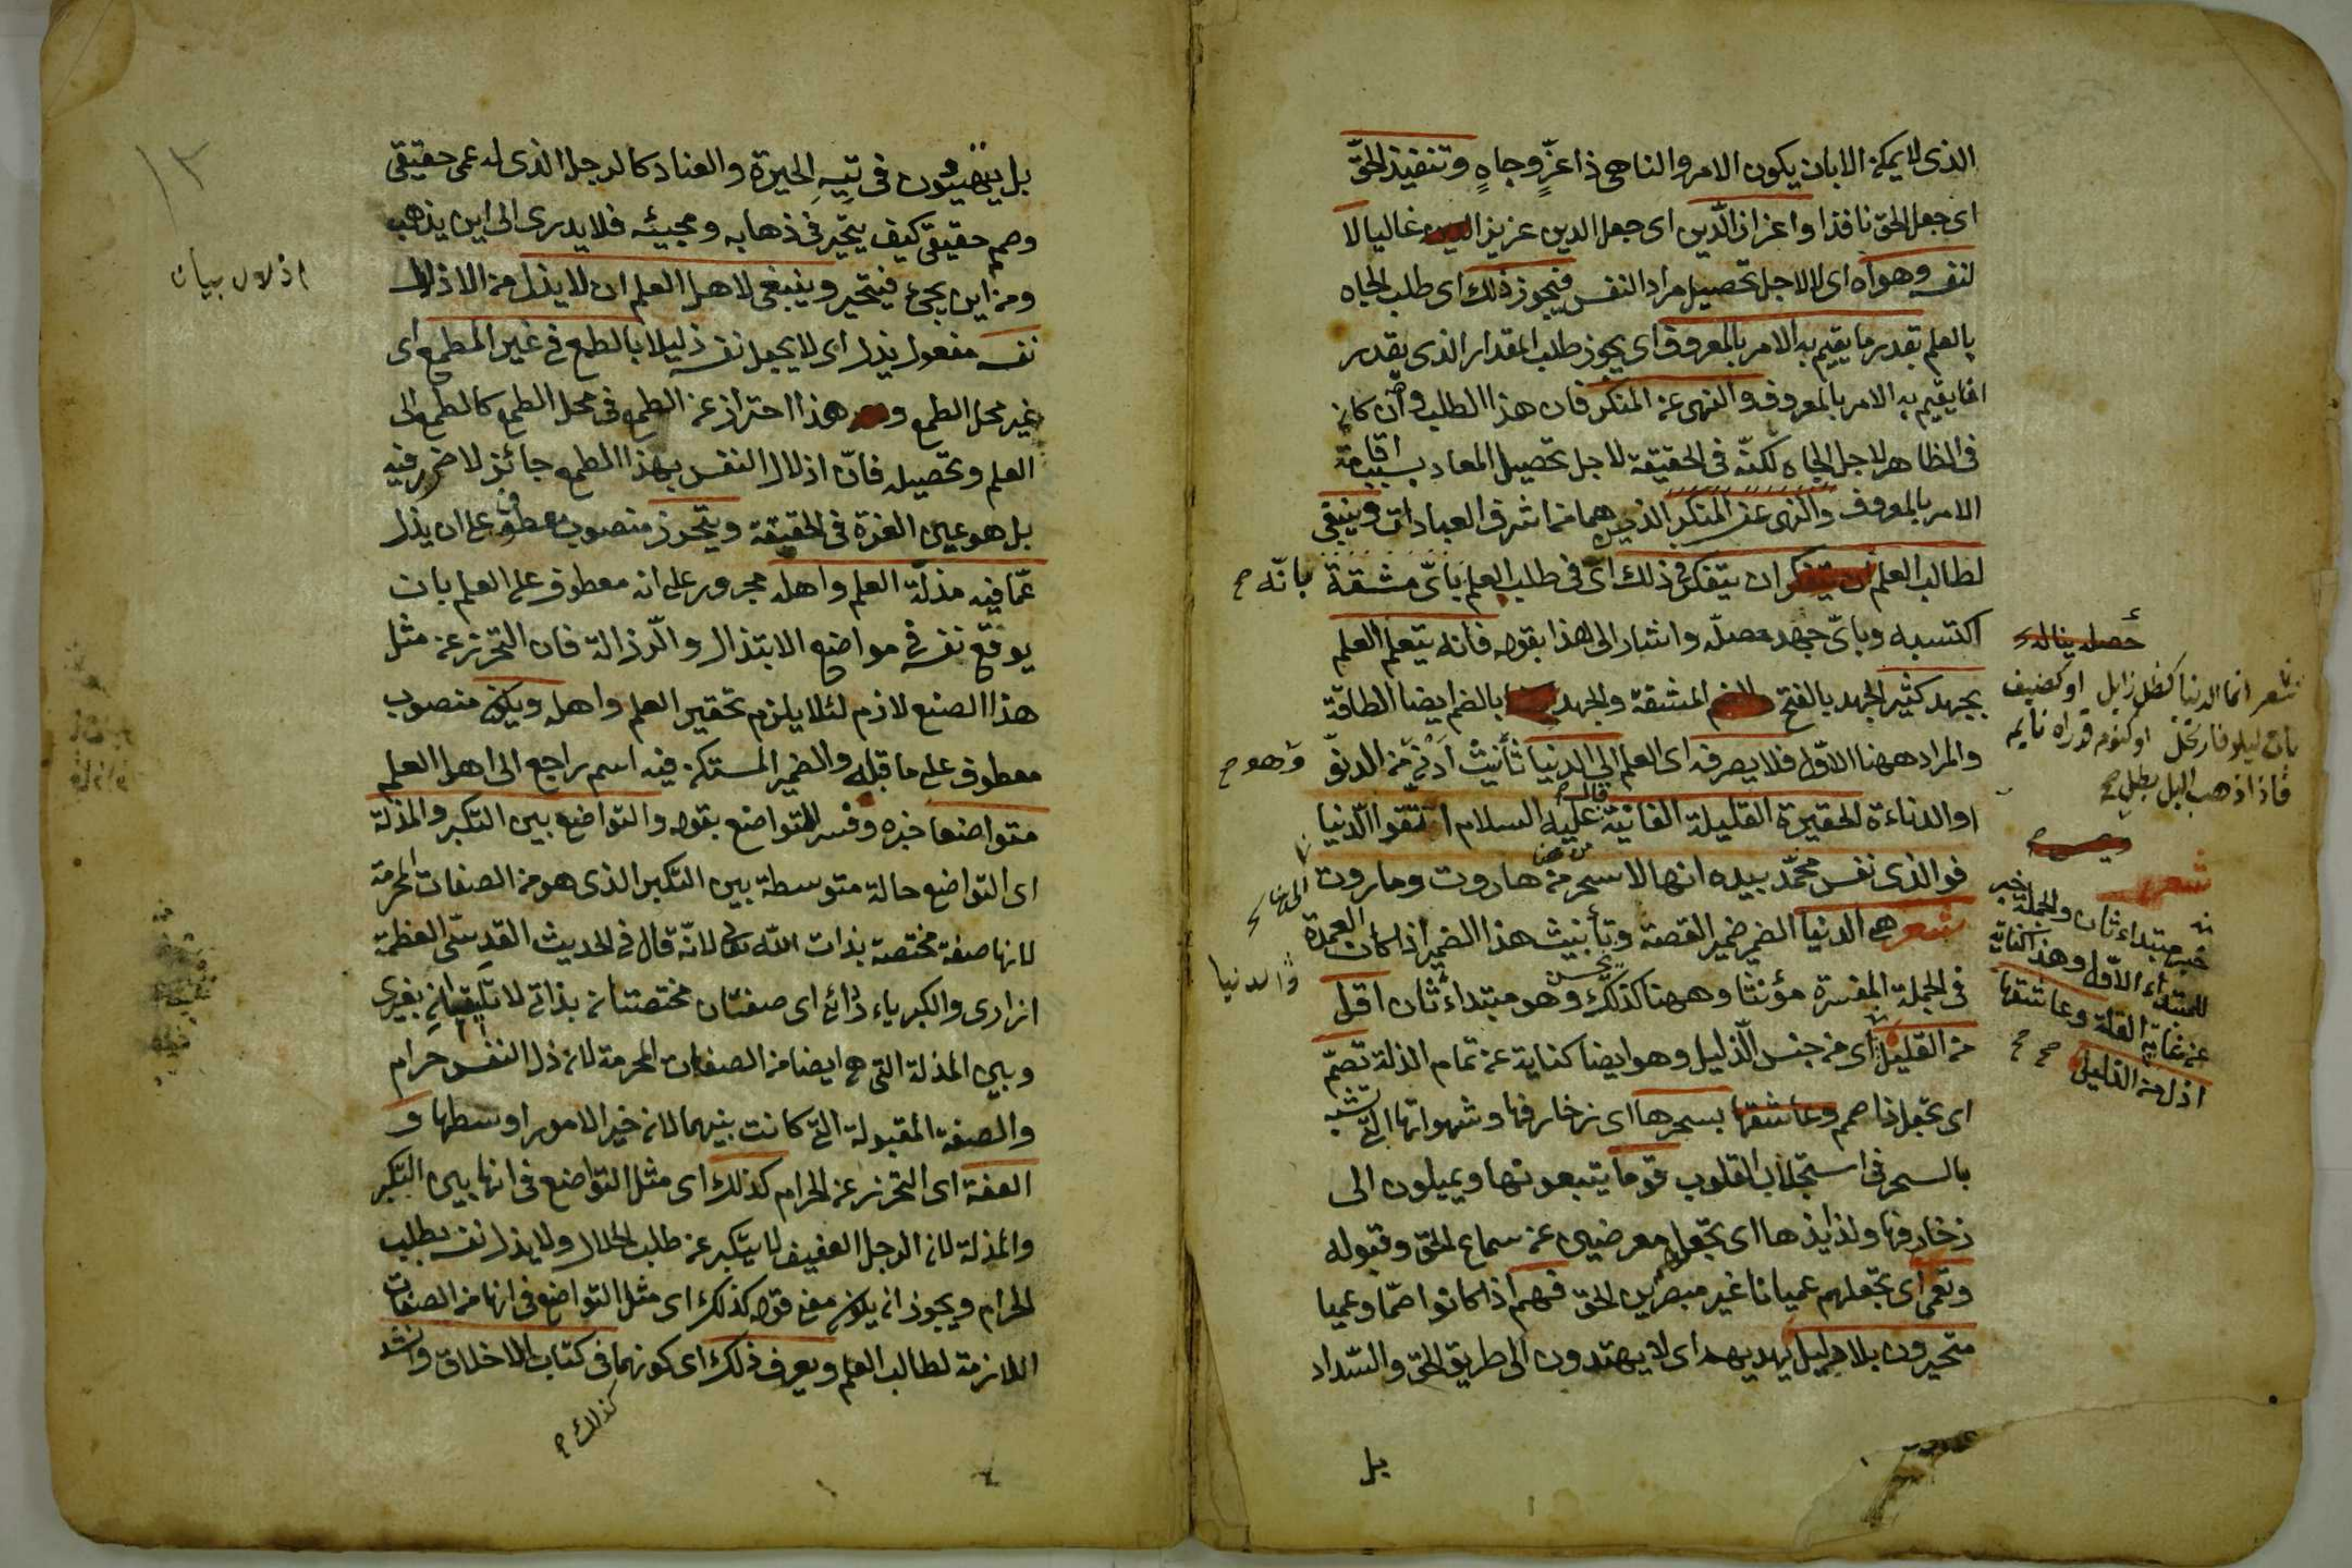 الذى لا يمكن الا بان يكون الامر والناهى ذا عزّ وجاهٍ وتنفيذ الحقّ
اى جعل الحق نافذا واعزاز الدّين اى جعل الدين عزيزا غالبا لا
لنفسه وهواه اى لا لاجل تحصيل مراد النفس فيجوز ذلك اى طلب الجاه
بالعلم بقدر ما يقيم به الامر بالمعروف اى يجوز طلب المقدار الذى يقدر
ان يقيم به الامر بالمعروف والنهى عن المنكر فان هذا الطلب وان كان
فى الظاهر لاجل الجاه لكنّه فى الحقيقة لاجل تحصيل المعاد بسبب اقامة
الامر بالمعروف والنهى عن المنكر الذين هما من اشرف العبادات وينبغى
لطالب العلم ان يتفكر فى ذلك اى فى طلب العلم باىّ مشقة بانّه صح
اكتسبه وباىّ جهد حصله واشار الى هذا بقوله فانه يتعلم العلم
بجهد كثير الجهد بالفتح المشقة والجهد بالضم ايضا الطاقة
والمراد ههنا الاوّل فلا يصرفه اى العلم الى الدنيا تأنيث أدنى من الدنوّ وهو صح
او الدناءة الحقيرة القليلة الفانية قال عليه السلام اتّقوا الدّنيا
فوالذى نفس محمّد بيده انها لاسحر من هاروت وماروت
شعر هى الدنيا الضمير ضمير القصة وتأنيث هذا الضمير اذا كان العمدة
فى الجملة المفسرة مؤنثا وههنا كذلك وهو مبتداء ثان اقل والدنيا
من القليل اى من جنس الذليل وهو ايضا كناية عن تمام الذلة تصمّ
اى تجعل ذا صمم وعاشقها بسحرها اى زخارفها وشهواتها التى تشبه
بالسحر فى استجلاب القلوب قوما يتبعونها ويميلون الى
زخارفها ولذايذها اى تجعل معرضين عن سماع الحق وقبوله
وتعمى اى تجعلهم عميانا غير مبصرين الحق فهم اذا كانوا صمّا وعميا
متحيرون بلا دليل يهديهم اى لا يهتدون الى طريق الحق والسّداد
بل
شعر انما الدنيا كظل زايل او كضيف
بات ليلا فارتحل او كنوم قد راه نايم
فاذا ذهب اليل بطل صح
شعر
خبر مبتداء ثان والجملة خبر
للمبتداء الاوّل وهذا كناية
عن غاية القلة وعاشقها
اذل من الذليل صح صح
١٣
بل يبقون فى تيهِ الحيرة والعناد كالرجل الذى له عمى حقيقى
وصم حقيقى كيف يتحير فى ذهابه ومجيئه فلا يدرى الى اين يذهب
ومن اين يجئ فيتحير وينبغى لاهل العلم ان لا يذل من الاذلال
نفسه مفعول يذل اى لا يجعل نفسه ذليلا بالطمع فى غير المطمع اى
غير محل الطمع و هذا احتراز عن الطمع فى محل الطمع كالطمع الى
العلم وتحصيله فانّ اذلال النفس بهذا الطمع جائز لا ضرر فيه
بل هو عين العزة فى الحقيقة ويتحرز منصوب معطوف على ان يذل
عمّا فيه مذلّة العلم واهله مجرور على انه معطوف على العلم بان
يوقع نفسه فى مواضع الابتذال والرّذالة فان التحرز عن مثل
هذا الصنع لازم لئلا يلزم تحقير العلم واهله ويكون منصوب
معطوف على ما قبله والضمير المستكن فيه اسم راجع الى اهل العلم
متواضعا خبره وفسر التواضع بقوله والتواضع بين التكبر والمذلة
اى التواضع حالة متوسطة بين التكبر الذى هو من الصفات المحرمة
لانها صفة مختصة بذات الله تعالى لانّه قال فى الحديث القدسى العظمة
ازارى والكبرياء ردائى اى صفتان مختصتان بذاتى لا تليقان بغيرى
وبين المذلة التى هى ايضا من الصفات المحرمة لان ذل النفس حرام
والصفة المقبولة التى كانت بينهما لان خير الامور اوسطها و
العفة اى التحرز عن الحرام كذلك اى مثل التواضع فى انها بين التكبر
والمذلة لان الرجل العفيف لا يتكبر عن طلب الحلال ولا يذل نفسه بطلب
الحرام ويجوز ان يكون معنى قوله كذلك اى مثل التواضع فى انها من الصفات
اللازمة لطالب العلم ويعرف ذلك اى كونهما فى كتاب الاخلاق وانشد
كذلك صح